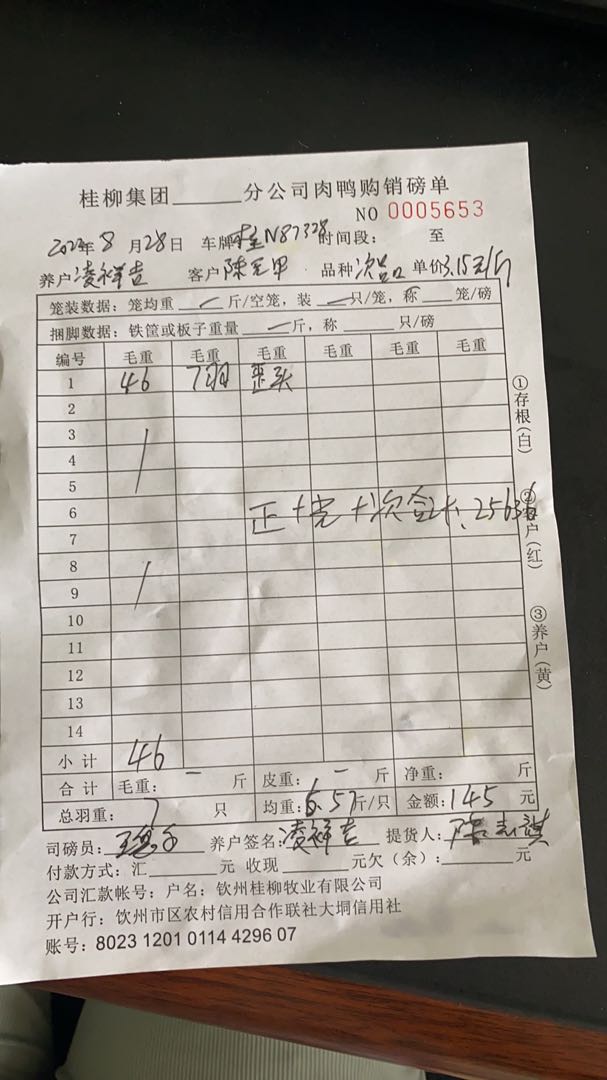 桂柳集团______分公司肉鸭购销磅单
NO 0005653
2022年8月28日 车牌 桂N87328 时间段: 至
养户 凌祥吉 客户 陈 甲 品种 次品 单价 3.15元/斤
笼装数据: 笼均重 — 斤/空笼, 装 — 只/笼, 称 — 笼/磅
捆脚数据: 铁筐或板子重量 — 斤, 称____只/磅
编号 毛重 毛重 毛重 毛重 毛重 毛重
1 46 7羽 歪头
2
3
4
5
6
正+光+次合计: 25636
7
8
9
10
11
12
13
14
小计 46
合计 毛重: — 斤 皮重: — 斤 净重: 斤
总羽重: 7 只 均重: 6.57斤/只 金额: 145 元
司磅员: 养户签名: 凌祥吉 提货人: 陈
付款方式: 汇______元 收现______元欠(余):______元
公司汇款帐号: 户名: 钦州桂柳牧业有限公司
开户行: 钦州市区农村信用合作联社大垌信用社
账号: 8023 1201 0114 4296 07
①存根(白)
②客户(红)
③养户(黄)